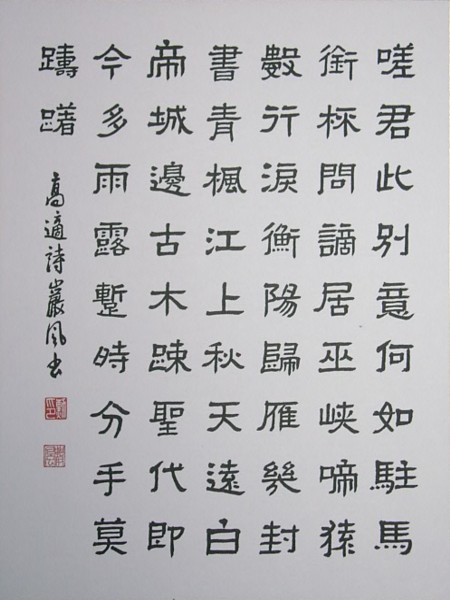 嗟君此別意何如駐馬
銜杯問謫居巫峽啼猿
數行淚衡陽歸雁幾封
書青楓江上秋天遠白
帝城邊古木疎聖代即
今多雨露蹔時分手莫
躊躇 高適詩巖風书